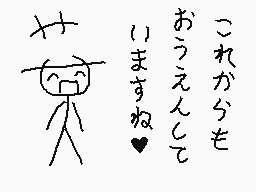 これからも
おうえんして
いますね♥